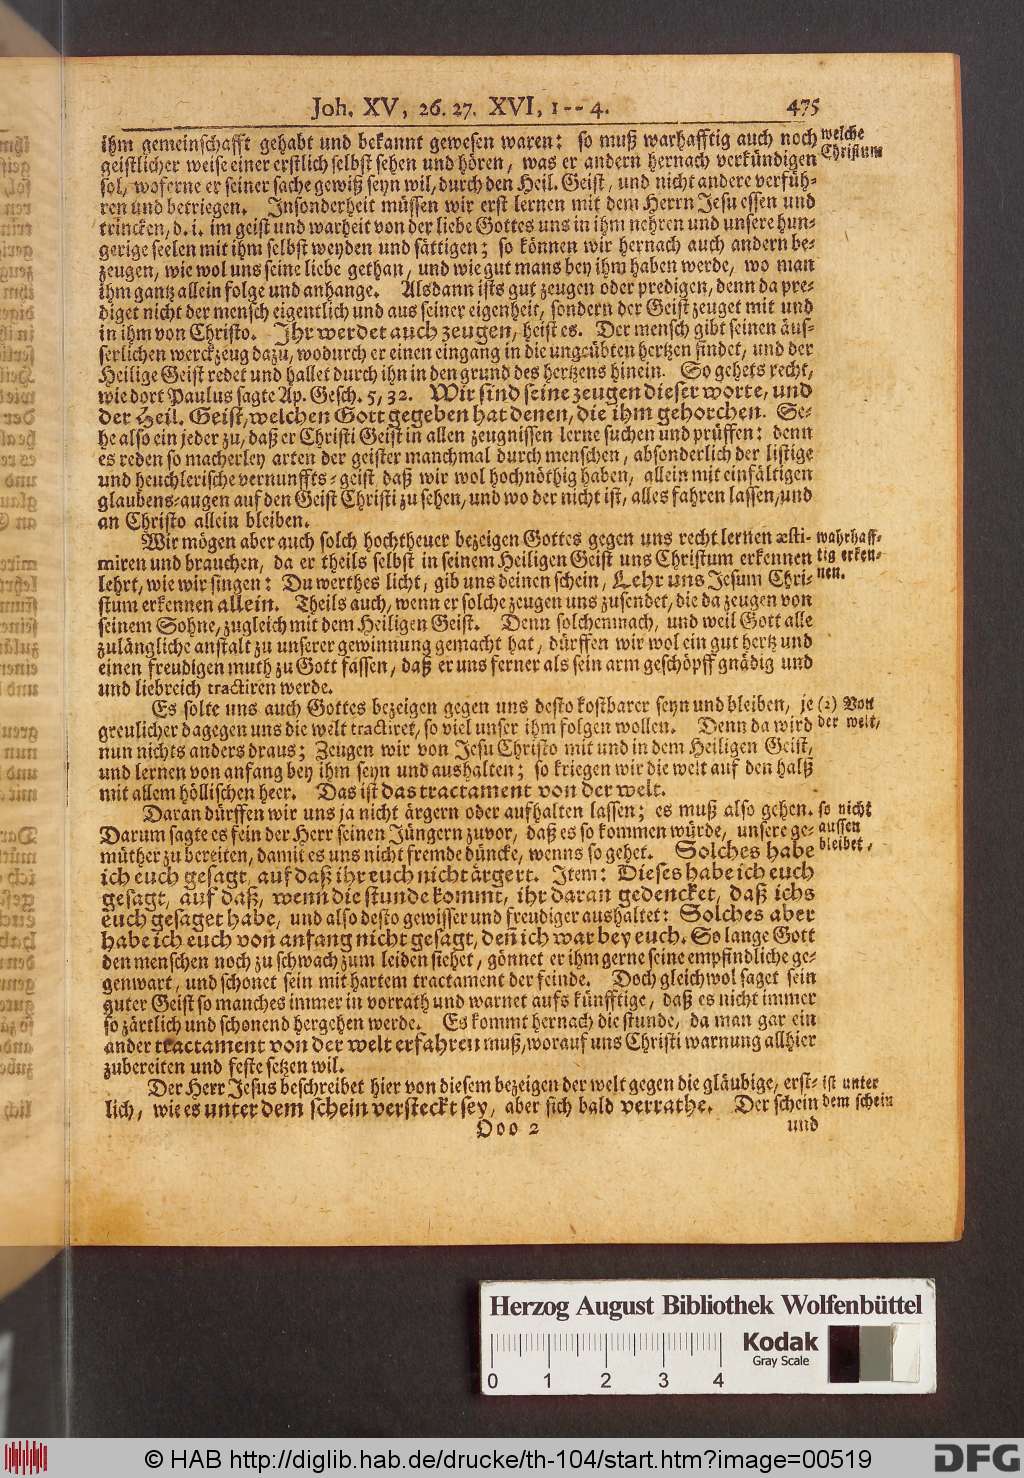 Joh. XV, 26. 27. XVI, 1--4. 475
ihm gemeinschafft gehabt und bekannt gewesen waren: so muß warhafftig auch noch
geistlicher weise einer erstlich selbst sehen und hören, was er andern hernach verkündigen
sol, woferne er seiner sache gewiß seyn wil, durch den Heil. Geist, und nicht andere verfüh-
ren und betriegen. Insonderheit müssen wir erst lernen mit dem Herrn Jesu essen und
trincken, d. i. im geist und warheit von der liebe Gottes uns in ihm nehren und unsere hun-
gerige seelen mit ihm selbst weyden und sättigen; so können wir hernach auch andern be-
zeugen, wie wol uns seine liebe gethan, und wie gut mans bey ihm haben werde, wo man
ihm gantz allein folge und anhange. Alsdann ists gut zeugen oder predigen, denn da pre-
diget nicht der mensch eigentlich und aus seiner eigenheit, sondern der Geist zeuget mit und
in ihm von Christo. Ihr werdet auch zeugen, heist es. Der mensch gibt seinen äus-
serlichen werckzeug dazu, wodurch er einen eingang in die ungeübten hertzen findet, und der
Heilige Geist redet und hallet durch ihn in den grund des hertzens hinein. So gehets recht,
wie dort Paulus sagte Ap. Gesch. 5, 32. Wir sind seine zeugen dieser worte, und
der Heil. Geist, welchen Gott gegeben hat denen, die ihm gehorchen. Se-
he also ein jeder zu, daß er Christi Geist in allen zeugnissen lerne suchen und prüffen: denn
es reden so macherley arten der geister manchmal durch menschen, absonderlich der listige
und heuchlerische vernunffts-geist, daß wir wol hochnöthig haben, allein mit einfältigen
glaubens-augen auf den Geist Christi zu sehen, und wo der nicht ist, alles fahren lassen, und
an Christo allein bleiben.
Wir mögen aber auch solch hochtheuer bezeigen Gottes gegen uns recht lernen æsti-
miren und brauchen, da er theils selbst in seinem Heiligen Geist uns Christum erkennen
lehrt, wie wir singen: Du werthes licht, gib uns deinen schein, Lehr uns Jesum Chri-
stum erkennen allein. Theils auch, wenn er solche zeugen uns zusendet, die da zeugen von
seinem Sohne, zugleich mit dem Heiligen Geist. Denn solchemnach, und weil Gott alle
zulängliche anstalt zu unserer gewinnung gemacht hat, dürffen wir wol ein gut hertz und
einen freudigen muth zu Gott fassen, daß er uns ferner als sein arm geschöpff gnädig und
und liebreich tractiren werde.
Es solte uns auch Gottes bezeigen gegen uns desto kostbarer seyn und bleiben, je
greulicher dagegen uns die welt tractiret, so viel unser ihm folgen wollen. Denn da wird
nun nichts anders draus; Zeugen wir von Jesu Christo mit und in dem Heiligen Geist,
und lernen von anfang bey ihm seyn und aushalten; so kriegen wir die welt auf den halß
mit allem höllischen heer. Das ist das tractament von der welt.
Daran dürffen wir uns ja nicht ärgern oder aufhalten lassen; es muß also gehen.
Darum sagte es fein der Herr seinen Jüngern zuvor, daß es so kommen würde, unsere ge-
müther zu bereiten, damit es uns nicht fremde düncke, wenns so gehet. Solches habe
ich euch gesagt, auf daß ihr euch nicht ärgert. Item: Dieses habe ich euch
gesagt, auf daß, wenn die stunde kommt, ihr daran gedencket, daß ichs
euch gesaget habe, und also desto gewisser und freudiger aushaltet: Solches aber
habe ich euch von anfang nicht gesagt, deñ ich war bey euch. So lange Gott
den menschen noch zu schwach zum leiden siehet, gönnet er ihm gerne seine empfindliche ge-
genwart, und schonet sein mit hartem tractament der feinde. Doch gleichwol saget sein
guter Geist so manches immer in vorrath und warnet aufs künfftige, daß es nicht immer
so zärtlich und schonend hergehen werde. Es kommt hernach die stunde, da man gar ein
ander tractament von der welt erfahren muß, worauf uns Christi warnung allhier
zubereiten und feste setzen wil.
Der Herr Jesus beschreibet hier von diesem bezeigen der welt gegen die gläubige, erst-
lich, wie es unter dem schein versteckt sey, aber sich bald verrathe. Der schein
Ooo 2 und
welche
Christum
wahrhaff-
tig erken-
nen.
(2) Von
der welt,
so nicht
aussen
bleibet,
ist unter
dem schein
Herzog August Bibliothek Wolfenbüttel
Kodak
Gray Scale
0 1 2 3 4
© HAB http://diglib.hab.de/drucke/th-104/start.htm?image=00519
DFG